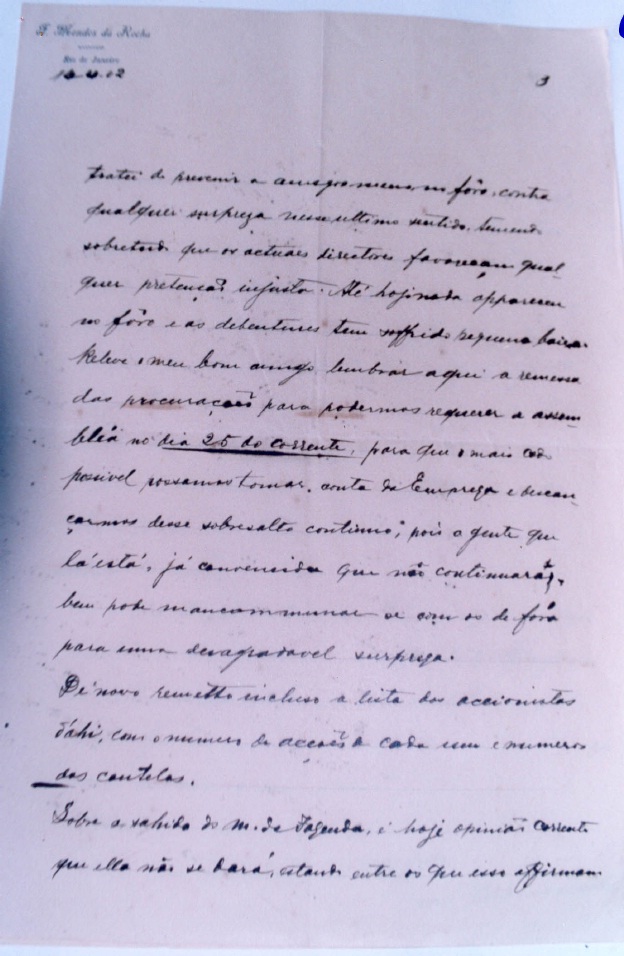 F. Mendes da Rocha
Rio de Janeiro
3
tratei de prevenir a no fôro, contra
qualquer surpreza nesse ultimo sentido, temendo
sobretudo que os actuaes directores favoreçam qual-
quer pretenção injusta. Até hoje nada appareceu
no fôro e as debentures tem soffrido pequena baixa.
Releve o meu bom amigo lembrar aqui a remessa
das procurações para podermos requerer a assem-
bléa no dia 25 do corrente, para que o mais cedo
possivel possamos tomar conta da Empreza e descan-
çarmos desse sobresalto continuo, pois a gente que
lá está, já convencida que não continuará,
bem pode mancommunar se com os de fóra
para uma desagradavel surpreza.
De novo remetto incluso a lista dos accionistas
d'ahi, com o numero de acções de cada um e numeros
das cautelas.
Sobre a sahida do M. da Fazenda, é hoje opinião corrente
que ella não se dará, estando entre os que isso affirmam